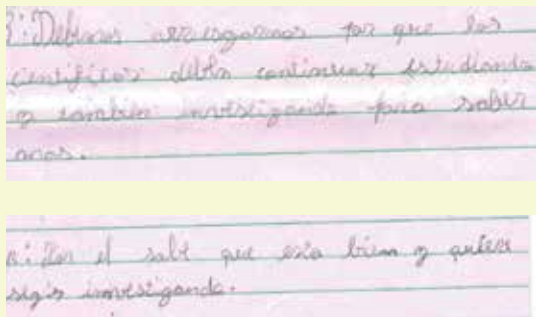 R: Debemos arriesgarnos por que los
cientificos deben continuar Estudiando
y tambien investigando para saber
mas.
R: Por el sabe que esta bien y quiere
segir investigando.